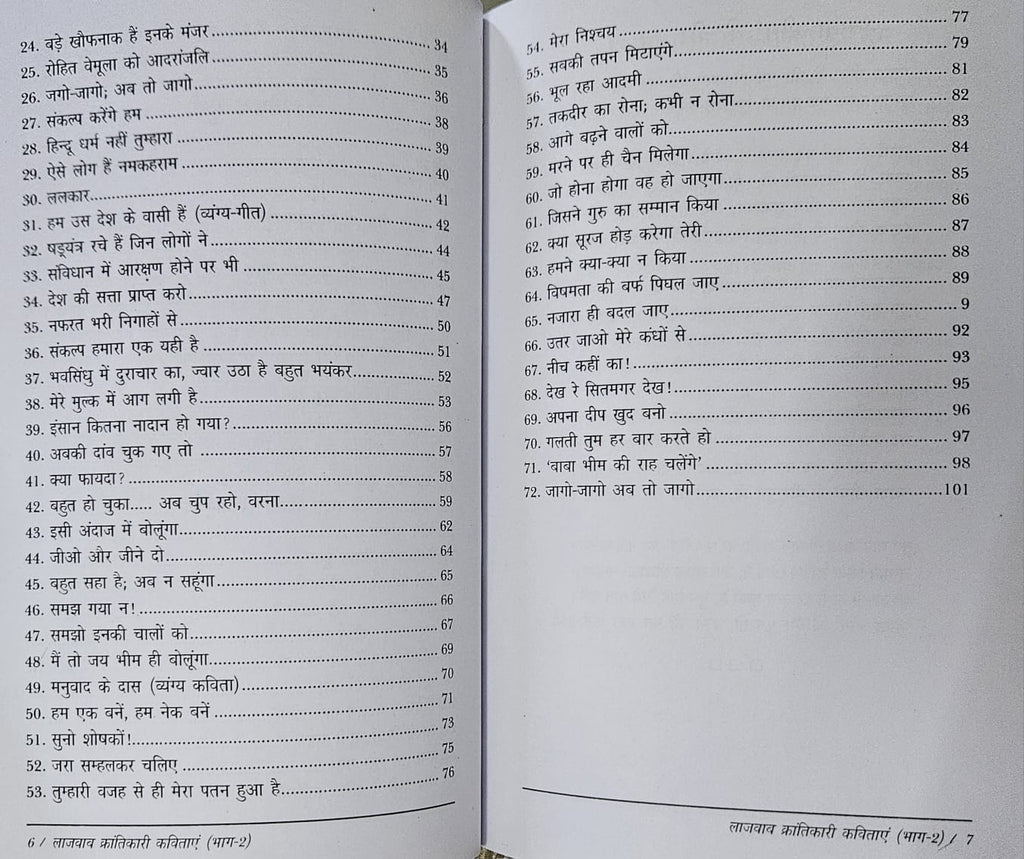 24. बड़े खौफनाक हैं इनके मंजर ........ 34
25. रोहित वेमूला को आदरांजलि ........ 35
26. जगो-जागो; अब तो जागो ........ 36
27. संकल्प करेंगे हम ........ 38
28. हिन्दू धर्म नहीं तुम्हारा ........ 39
29. ऐसे लोग हैं नमकहराम ........ 40
30. ललकार ........ 41
31. हम उस देश के वासी हैं (व्यंग्य-गीत) ........ 42
32. षड्यंत्र रचे हैं जिन लोगों ने ........ 44
33. संविधान में आरक्षण होने पर भी ........ 45
34. देश की सत्ता प्राप्त करो ........ 47
35. नफरत भरी निगाहों से ........ 50
36. संकल्प हमारा एक यही है ........ 51
37. भवसिंधु में दुराचार का, ज्वार उठा है बहुत भयंकर ........ 52
38. मेरे मुल्क में आग लगी है ........ 53
39. इंसान कितना नादान हो गया? ........ 56
40. अबकी दांव चुक गए तो ........ 57
41. क्या फायदा? ........ 58
42. बहुत हो चुका..... अब चुप रहो, वरना ........ 59
43. इसी अंदाज में बोलूंगा ........ 62
44. जीओ और जीने दो ........ 64
45. बहुत सहा है; अब न सहूंगा ........ 65
46. समझ गया न! ........ 66
47. समझो इनकी चालों को ........ 67
48. मैं तो जय भीम ही बोलूंगा ........ 69
49. मनुवाद के दास (व्यंग्य कविता) ........ 70
50. हम एक बनें, हम नेक बनें ........ 71
51. सुनो शोषकों! ........ 73
52. जरा सम्हलकर चलिए ........ 75
53. तुम्हारी वजह से ही मेरा पतन हुआ है ........ 76
6 / लाजवाब क्रांतिकारी कविताएं (भाग-2)
54. मेरा निश्चय ........ 77
55. सबकी तपन मिटाएंगे ........ 79
56. भूल रहा आदमी ........ 81
57. तकदीर का रोना; कभी न रोना ........ 82
58. आगे बढ़ने वालों को ........ 83
59. मरने पर ही चैन मिलेगा ........ 84
60. जो होना होगा वह हो जाएगा ........ 85
61. जिसने गुरु का सम्मान किया ........ 86
62. क्या सूरज होड़ करेगा तेरी ........ 87
63. हमने क्या-क्या न किया ........ 88
64. विषमता की बर्फ पिघल जाए ........ 89
65. नजारा ही बदल जाए ........ 9
66. उतर जाओ मेरे कंधों से ........ 92
67. नीच कहीं का! ........ 93
68. देख रे सितमगर देख! ........ 95
69. अपना दीप खुद बनो ........ 96
70. गलती तुम हर बार करते हो ........ 97
71. 'बाबा भीम की राह चलेंगे' ........ 98
72. जागो-जागो अब तो जागो ........ 101
लाजवाब क्रांतिकारी कविताएं (भाग-2) / 7